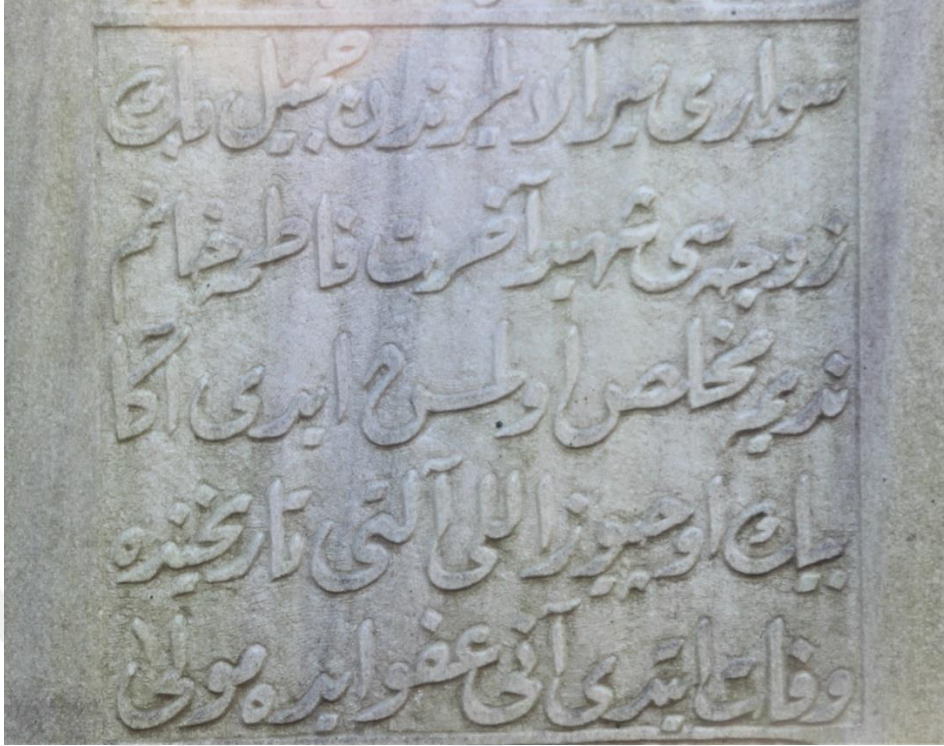 سوارى ميرآلايلرندن جميل بك
زوجه‌سى شهيد آخرت فاطمه خانم
نديمه مخلص اولمش ايدى اكا
بيك اوچيوز اللى آلتى تاريخنده
وفات ايتدى آنى عفو ايده مولى